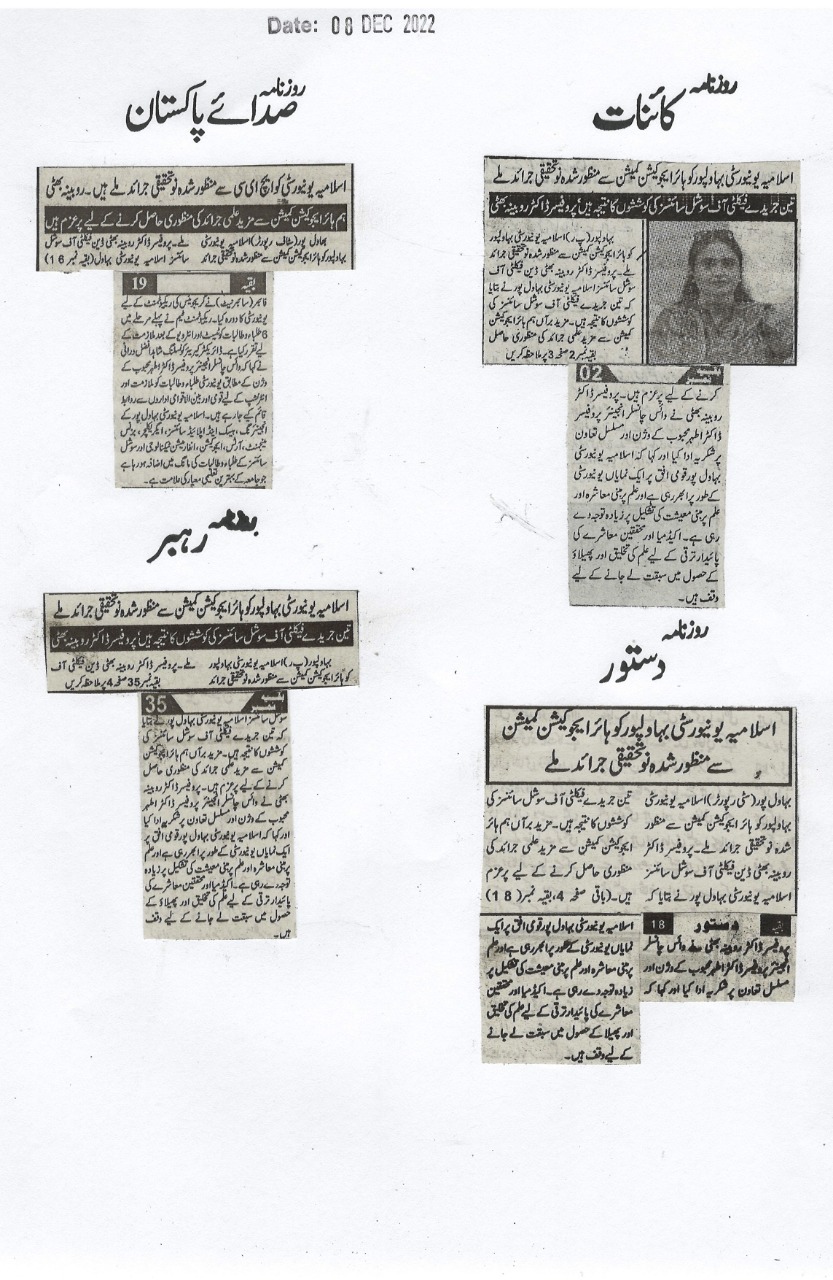 Date: 08 DEC 2022
روزنامہ
کائنات
اسلامیہ یونیورسٹی بہاولپور کو ہائر ایجوکیشن کمیشن سے منظور شدہ نو تحقیقی جرائد ملے
تین جریدے فیکلٹی آف سوشل سائنسز کی کوششوں کا نتیجہ ہیں' پروفیسر ڈاکٹر روبینہ بھٹی
بہاولپور (پ ر) اسلامیہ یونیورسٹی بہاولپور
کو ہائر ایجوکیشن کمیشن سے منظور شدہ نو تحقیقی جرائد
ملے۔ پروفیسر ڈاکٹر روبینہ بھٹی ڈین فیکلٹی آف
سوشل سائنسز اسلامیہ یونیورسٹی بہاول پور نے بتایا
کہ تین جریدے فیکلٹی آف سوشل سائنسز کی
کوششوں کا نتیجہ ہیں۔ مزید برآں ہم ہائر ایجوکیشن
کمیشن سے مزید علمی جرائد کی منظوری حاصل
بقیہ نمبر 2 صفحہ 3 پر ملاحظہ کریں
بقیہ نمبر 02
کرنے کے لیے پرعزم ہیں۔ پروفیسر ڈاکٹر
روبینہ بھٹی نے وائس چانسلر انجینئر پروفیسر
ڈاکٹر اطہر محبوب کے وژن اور مسلسل تعاون
پر شکریہ ادا کیا اور کہا کہ اسلامیہ یونیورسٹی
بہاول پور قومی افق پر ایک نمایاں یونیورسٹی
کے طور پر ابھر رہی ہے اور علم پر مبنی معاشرہ اور
علم پر مبنی معیشت کی تشکیل پر زیادہ توجہ دے
رہی ہے۔ اکیڈمیا اور محققین معاشرے کی
پائیدار ترقی کے لیے علم کی تخلیق اور پھیلاؤ
کے حصول میں سبقت لے جانے کے لیے
وقف ہیں۔
روزنامہ
صدائے پاکستان
اسلامیہ یونیورسٹی کو ایچ ای سی سے منظور شدہ نو تحقیقی جرائد ملے ہیں۔ روبینہ بھٹی
ہم ہائر ایجوکیشن کمیشن سے مزید علمی جرائد کی منظوری حاصل کرنے کے لیے پرعزم ہیں
بہاول پور (سٹاف رپورٹر) اسلامیہ یونیورسٹی
بہاولپور کو ہائر ایجوکیشن کمیشن سے منظور شدہ نو تحقیقی جرائد
ملے۔ پروفیسر ڈاکٹر روبینہ بھٹی ڈین فیکلٹی آف سوشل
سائنسز اسلامیہ یونیورسٹی بہاول (بقیہ نمبر 16)
بقیہ 19
فائبر (سائبرنیٹ) نے گریجویٹس کی ریکروٹمنٹ کے لیے
یونیورسٹی کا دورہ کیا۔ ریکروٹمنٹ ٹیم نے پہلے مرحلے میں
6 طلباء و طالبات کو ٹیسٹ اور انٹرویو کے بعد ملازمت کے
لیے تقرر کیا ہے۔ ڈائریکٹر کیریئر کونسلنگ شاہد افضل درانی
نے کہا کہ وائس چانسلر انجینئر پروفیسر ڈاکٹر اطہر محبوب کے
وژن کے مطابق یونیورسٹی طلباء و طالبات کو ملازمت اور
انٹرنشپ کے لیے قومی اور بین الاقوامی اداروں سے روابط
قائم کیے جا رہے ہیں۔ اسلامیہ یونیورسٹی بہاول پور کے
انجینئرنگ، بیسک اینڈ اپلائیڈ سائنسز، ایگریکلچر، بزنس
مینجمنٹ، آرٹس، ایجوکیشن، انفارمیشن ٹیکنالوجی اور سوشل
سائنسز کے طلباء و طالبات کی مانگ میں اضافہ ہو رہا ہے
جو جامعہ کے بہترین تعلیمی معیار کی علامت ہے۔
رہبر
اسلامیہ یونیورسٹی بہاولپور کو ہائر ایجوکیشن کمیشن سے منظور شدہ نو تحقیقی جرائد ملے
تین جریدے فیکلٹی آف سوشل سائنسز کی کوششوں کا نتیجہ ہیں' پروفیسر ڈاکٹر روبینہ بھٹی
بہاولپور (پ ر) اسلامیہ یونیورسٹی بہاولپور
کو ہائر ایجوکیشن کمیشن سے منظور شدہ نو تحقیقی جرائد
ملے۔ پروفیسر ڈاکٹر روبینہ بھٹی ڈین فیکلٹی آف
بقیہ نمبر 35 صفحہ 4 پر ملاحظہ کریں
بقیہ نمبر 35
سوشل سائنسز اسلامیہ یونیورسٹی بہاول پور نے بتایا
کہ تین جریدے فیکلٹی آف سوشل سائنسز کی
کوششوں کا نتیجہ ہیں۔ مزید برآں ہم ہائر ایجوکیشن
کمیشن سے مزید علمی جرائد کی منظوری حاصل
کرنے کے لیے پرعزم ہیں۔ پروفیسر ڈاکٹر روبینہ
بھٹی نے وائس چانسلر انجینئر پروفیسر ڈاکٹر اطہر
محبوب کے وژن اور مسلسل تعاون پر شکریہ ادا کیا
اور کہا کہ اسلامیہ یونیورسٹی بہاول پور قومی افق پر
ایک نمایاں یونیورسٹی کے طور پر ابھر رہی ہے اور علم
پر مبنی معاشرہ اور علم پر مبنی معیشت کی تشکیل پر زیادہ
توجہ دے رہی ہے۔ اکیڈمیا اور محققین معاشرے کی
پائیدار ترقی کے لیے علم کی تخلیق اور پھیلاؤ کے
حصول میں سبقت لے جانے کے لیے وقف
ہیں۔
روزنامہ
دستور
اسلامیہ یونیورسٹی بہاولپور کو ہائر ایجوکیشن کمیشن
سے منظور شدہ نو تحقیقی جرائد ملے
بہاول پور (سٹی رپورٹر) اسلامیہ یونیورسٹی
بہاولپور کو ہائر ایجوکیشن کمیشن سے منظور
شدہ نو تحقیقی جرائد ملے۔ پروفیسر ڈاکٹر
روبینہ بھٹی ڈین فیکلٹی آف سوشل سائنسز
اسلامیہ یونیورسٹی بہاول پور نے بتایا کہ
تین جریدے فیکلٹی آف سوشل سائنسز کی
کوششوں کا نتیجہ ہیں۔ مزید برآں ہم ہائر
ایجوکیشن کمیشن سے مزید علمی جرائد کی
منظوری حاصل کرنے کے لیے پرعزم
ہیں۔ (باقی صفحہ 4، بقیہ نمبر 18)
بقیہ دستور 18
پروفیسر ڈاکٹر روبینہ بھٹی نے وائس چانسلر
انجینئر پروفیسر ڈاکٹر اطہر محبوب کے وژن اور
مسلسل تعاون پر شکریہ ادا کیا اور کہا کہ
اسلامیہ یونیورسٹی بہاول پور قومی افق پر ایک
نمایاں یونیورسٹی کے طور پر ابھر رہی ہے اور علم
پر مبنی معاشرہ اور علم پر مبنی معیشت کی تشکیل پر
زیادہ توجہ دے رہی ہے۔ اکیڈمیا اور محققین
معاشرے کی پائیدار ترقی کے لیے علم کی تخلیق
اور پھیلا کے حصول میں سبقت لے جانے
کے لیے وقف ہیں۔